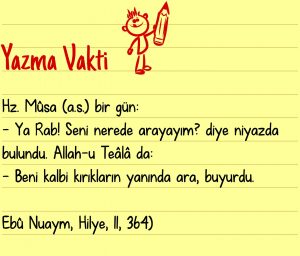 Yazma Vakti
Hz. Mûsa (a.s.) bir gün:
- Ya Rab! Seni nerede arayayım? diye niyazda
bulundu. Allah-u Teâlâ da:
- Beni kalbi kırıkların yanında ara, buyurdu.
Ebû Nuaym, Hilye, II, 364)